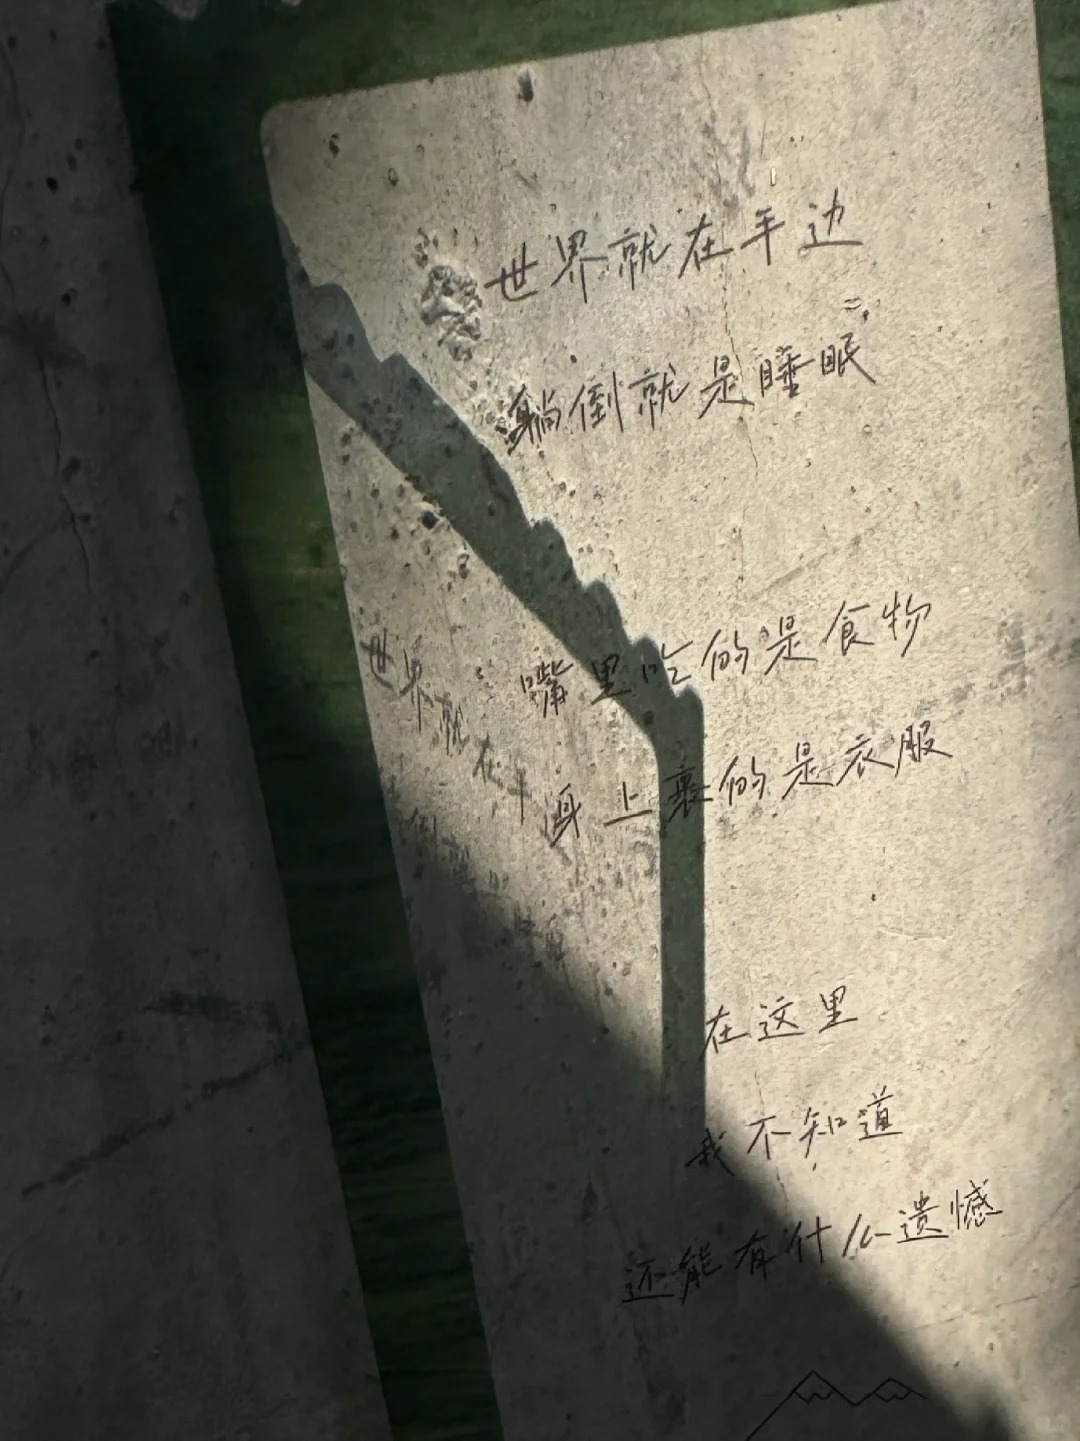 世界就在手边
躺倒就是睡眠
嘴里吃的是食物
身上裹的是衣服
在这里
我不知道
还能有什么遗憾
世界就在手